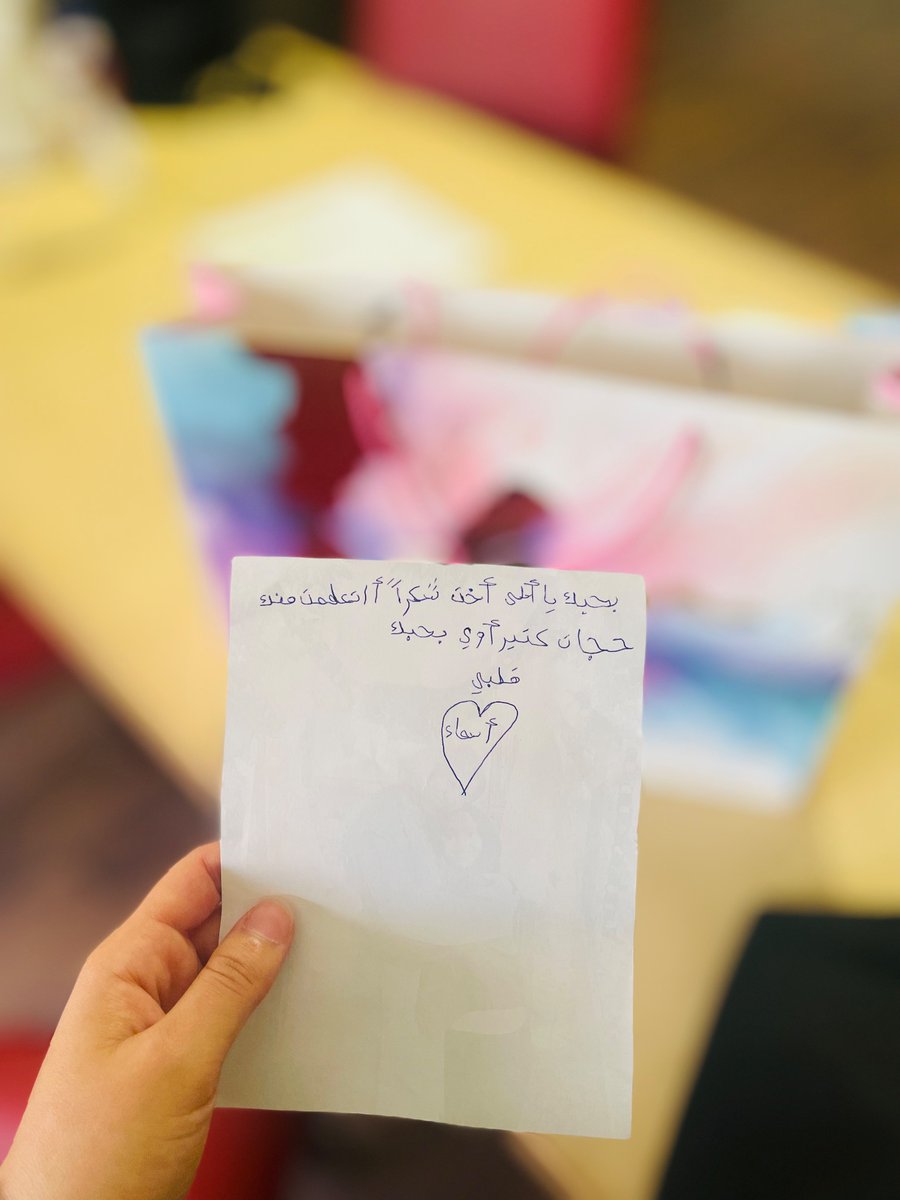 بحبك يا أحلى أخت شكراً أتعلمت منك
حجات كتير أوي بحبك
قلبي
أسماء